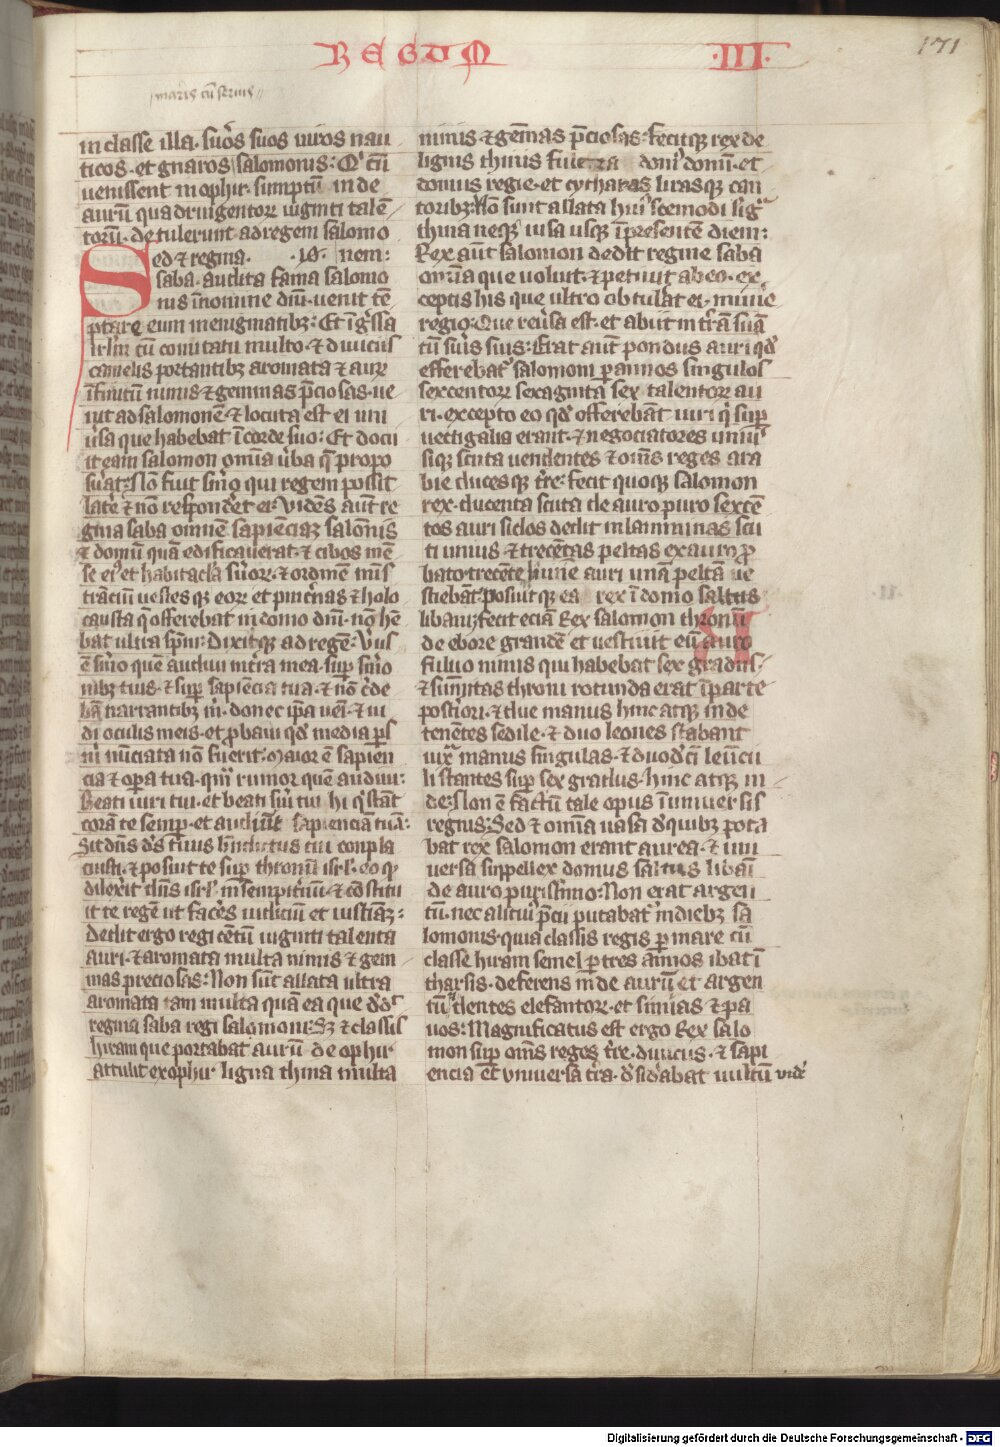 REGUM
III
171
maris cu seruis
in classe illa. suos suos uiros nau
ticos. et gnaros salomonis: Qi cu
uenissent in ophir. sumptu inde
auru quadringentor uiginti talen
toru. detulerunt ad regem salomo
Sed z regina. nem:
saba. audita fama salomo
nis i nomine dni. uenit te
ptare eum in enigmatibz: Et igssa
irlm cu comitatu multo. z diuiciis
camelis portantibz aromata z aur
ifinitu nimis z gemmas pciosas. ue
nit ad salomone. z locuta est ei uni
usa que habebat i corde suo: Et docu
it eam salomon omia uba q propo
suat: No fuit smo qui regem possit
late z no responderet ei: Videns aut re
gina saba omnem sapienciaz salonis
z domu qua edificauerat. z cibos men
se ei et habitacla suor. z ordine mis
trantiu uestes qz eor et pincnas z holo
causta q offerebat in domo dni. no he
bat ultra spm: Dixitqz ad rege: Vus
e smo que audiui in tra mea. sup smo
nibz tuis. z sup sapiencia tua. z no cde
ba narrantibz m. donec ipa ueni. z ui
di oculis meis. et pbaui qd media ps
m nunciata no fuerit. Maior e sapien
cia z opa tua. qm rumor que audiui:
Beati uiri tui. et beati sui tui hi q stat
cora te semp. et audiut sapiencia tua:
Sit dns ds tuus bndictus cui conpla
cuisti. z posuit te sup thronu isrl. eo q
dilexit dns isrl in sempitnu. z costitu
it te rege ut faces iudiciu et iusticia:
Dedit ergo regi centu uiginti talenta
auri. z aromata multa nimis z gem
mas preciosas: Non sut allata ultra
aromata tam multa qua ea que dedit
regina saba regi salomoni: Sz z classis
hiram que portabat auru de ophir
attulit ex ophir ligna thina multa
nimis z gemas pciosas: Fecitqz rex de
lignis thinis fulcra domi domini. et
domus regie. et cytharas lirasqz can
toribz: No sunt allata huiscemodi lig
thina neqz uisa usqz i presente diem:
Rex aut salomon dedit regine saba
omia que uoluit. z petiuit ab eo. ex
ceptis his que ultro obtulat ei. mune
regio: Que reusa est. et abiit in tra sua
cu suis suis: Erat aut pondus auri qd
efferebat salomoni p annos singulos
sexcentor sexaginta sex talentor au
ri. excepto eo qd offerebat uiri q sup
uectigalia erant. z negociatores uniu
siqz scuta uendentes z oms reges ara
bie ducesqz tre: fecit quoqz salomon
rex. ducenta scuta de auro puro sexce
tos auri siclos dedit in lamminas scu
ti unius. z trecetas peltas ex auro p
bato. trecente mine auri una pelta ue
stiebat: posuitqz ea rex i domo saltus
libani: fecit ecia Rex salomon thronu
de ebore grande et uestiuit eu auro
fuluo nimis qui habebat sex gradus.
z sumitas throni rotunda erat i parte
postiori. z due manus hinc atqz inde
tenetes sedile. z duo leones stabant
iux manus singulas. z duodci leucu
li stantes sup sex gradus. hinc atqz in
de: No e factu tale opus i uniuersis
regnis: Sed z omia uasa dquibz pota
bat rex salomon erant aurea. z uni
uersa suppellex domus saltus libani
de auro purissimo: Non erat argen
tu. nec alicui pcii putabat in diebz sa
lomonis. quia classis regis p mare cu
classe hiram semel p tres annos ibat i
tharsis. deferens inde auru et argen
tu dentes elefantor. et simias z pa
uos: Magnificatus est ergo Rex salo
mon sup oms reges tre. diuiciis. z sapi
encia Et vniuersa tra. dsidabat uultu vide
Digitalisierung gefördert durch die Deutsche Forschungsgemeinschaft - DFG